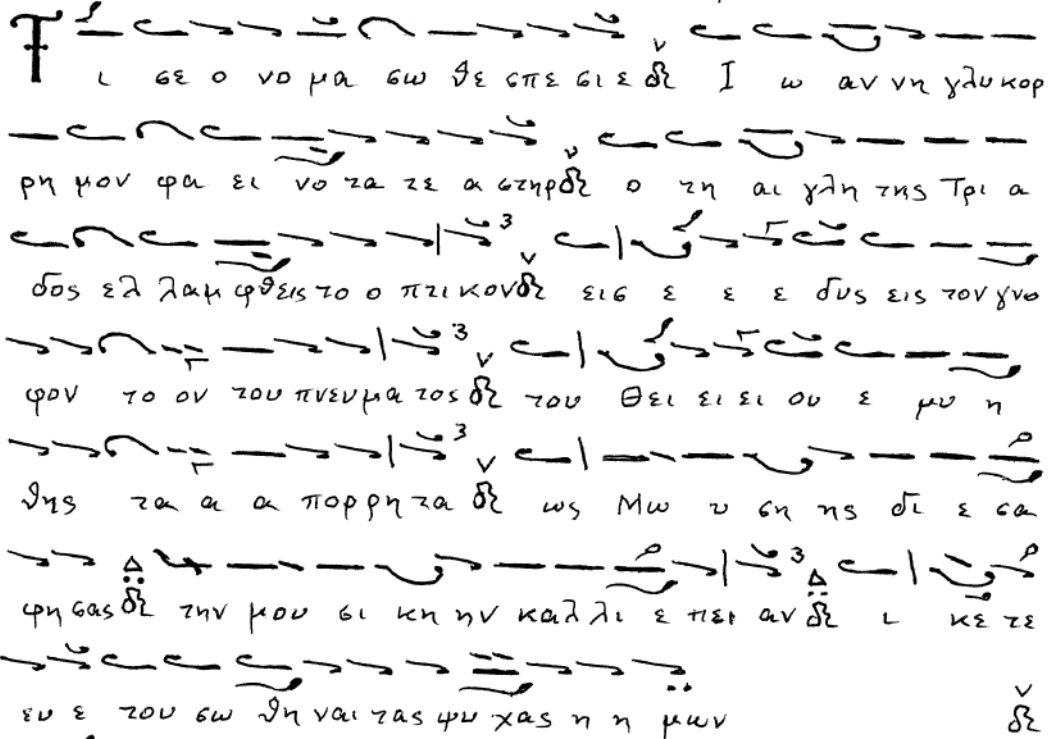 Τ ι σε ο νο μα σω θε σπε σι ε Ι ω αν νη γλυ κορ
ρη μον φα ει νο τα τε α στηρ ο τη αι γλη της Τρι α
δος ελ λαμ φθεις το ο πτι κον εισ ε ε ε δυς εις τον γνο
φον το ον του πνευ μα τος του Θει ει ει ου ε μυ η
θης τα α α πορ ρη τα ως Μω υ ση ης δι ε σα
φη σας την μου σι κη ην καλ λι ε πει αν ι κε τε
ευ ε του σω θη ναι τας ψυ χας η η μων